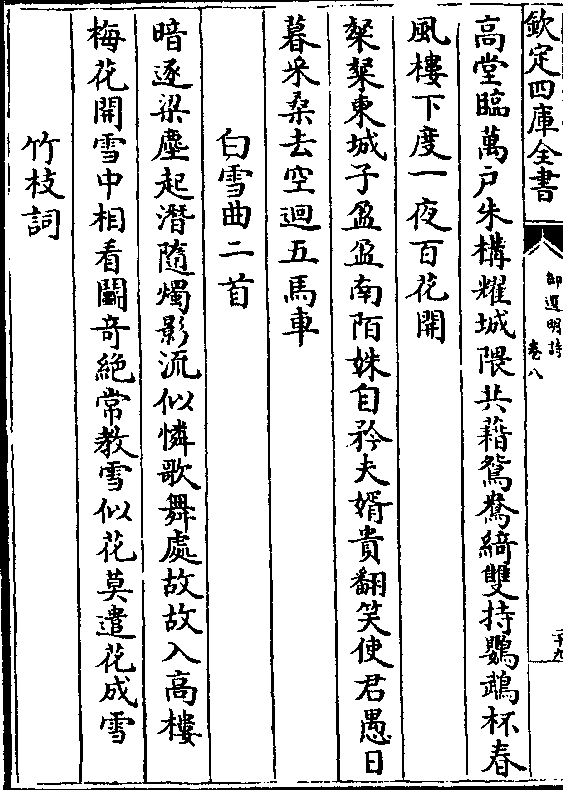 欽定四庫全書
御選明詩
卷八
二十九
高堂臨萬户朱構耀城隈共藉鴛鴦綺雙持鸚鵡杯春
風樓下度一夜百花開
粲粲東城子盈盈南陌姝自矜夫婿貴翻笑使君愚日
暮采桑去空迴五馬車
白雪曲二首
暗逐梁塵起潛隨燭影流似憐歌舞處故故入高樓
梅花開雪中相看鬭奇絶常教雪似花莫遣花成雪
竹枝詞